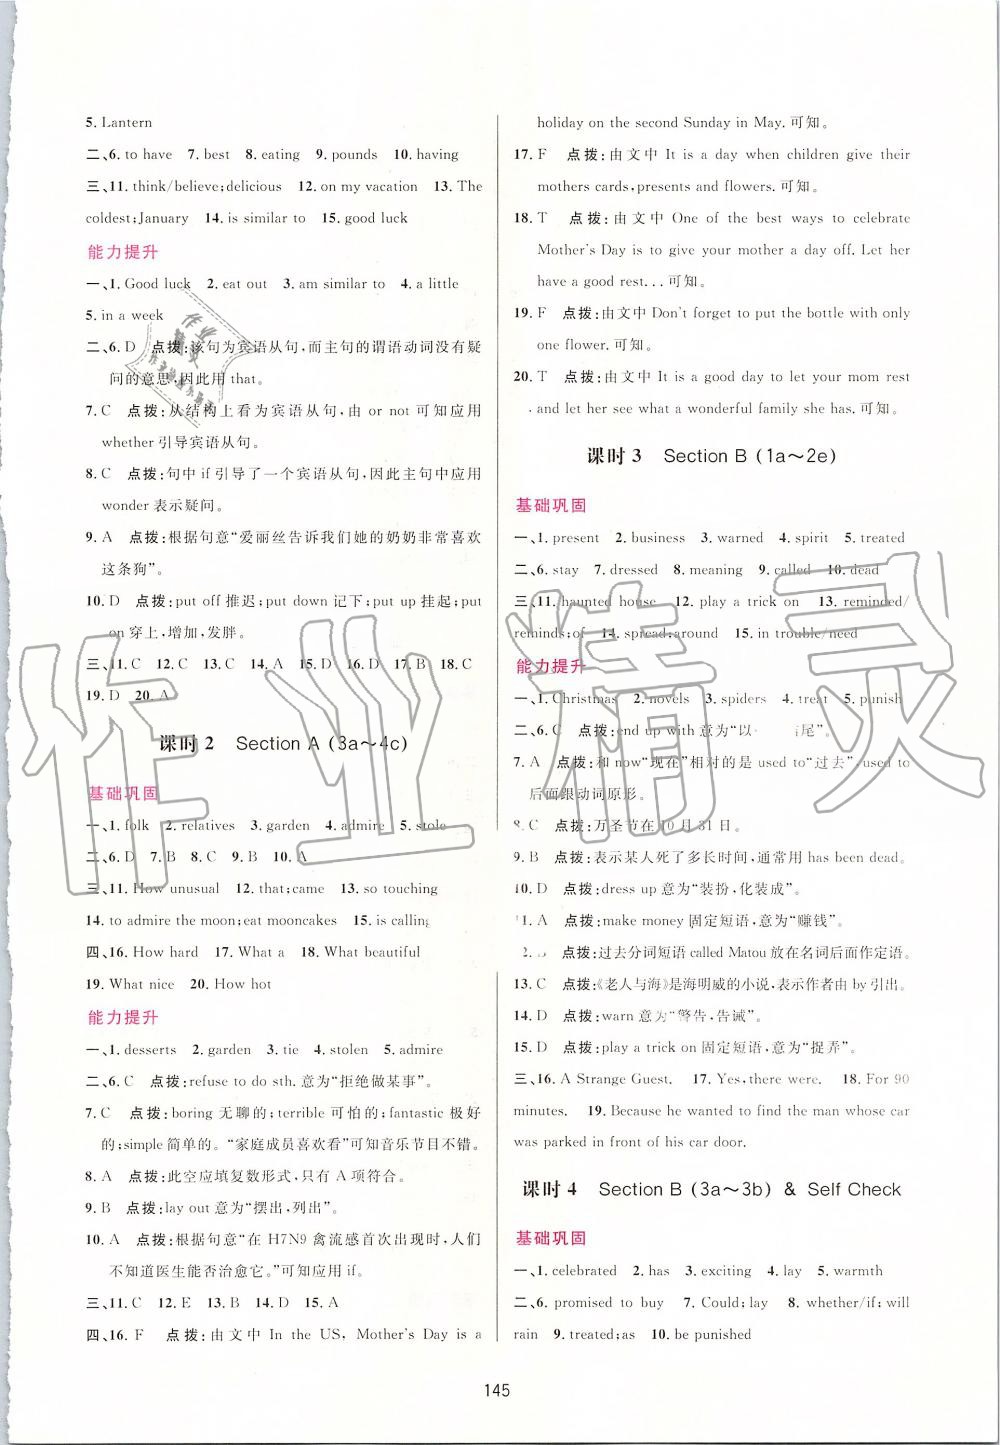 5. Lantern
二、6. to have 7. best 8. eating 9. pounds 10. having
三、11. think/believe;delicious 12. on my vacation 13. The
coldest;January 14. is similar to 15. good luck
能力提升
一、1. Good luck 2. eat out 3. am similar to 4. a little
5. in a week
二、6. D 点拨:该句为宾语从句,而主句的谓语动词没有疑
问的意思,因此用 that。
7. C 点拨:从结构上看为宾语从句,由 or not 可知应用
whether 引导宾语从句。
8. C 点拨:句中 if 引导了一个宾语从句,因此主句中使用
wonder 表示疑问。
9. A 点拨:根据句意“爱丽丝告诉我们她的奶奶非常喜欢
这条狗”。
10. D 点拨:put off 推迟;put down 记下;put up 挂起;put
on 穿上,增加,发胖。
三、11. C 12. C 13. C 14. A 15. D 16. D 17. B 18. C
19. D 20. A
课时 2 Section A (3a～4c)
基础巩固
一、1. folk 2. relatives 3. garden 4. admire 5. stole
二、6. D 7. B 8. C 9. B 10. A
三、11. How unusual 12. that;came 13. so touching
14. to admire the moon;eat mooncakes 15. is calling
四、16. How hard 17. What a 18. What beautiful
19. What nice 20. How hot
能力提升
一、1. desserts 2. garden 3. tie 4. stolen 5. admire
二、6. C 点拨:refuse to do sth. 意为“拒绝做某事”。
7. C 点拨:boring 无聊的;terrible 可怕的;fantastic 极好
的;simple 简单的。“家庭成员喜欢看”可知音乐节目不错。
8. A 点拨:此空应填复数形式,只有 A 项符合。
9. B 点拨:lay out 意为“摆出,列出”。
10. A 点拨:根据句意“在 H7N9 禽流感首次出现时,人们
不知道医生能否治愈它。”可知应用 if。
三、11. C 12. E 13. B 14. D 15. A
四、16. F 点拨:由文中 In the US, Mother's Day is a
holiday on the second Sunday in May. 可知。
17. F 点拨:由文中 It is a day when children give their
mothers cards, presents and flowers. 可知。
18. T 点拨:由文中 One of the best ways to celebrate
Mother's Day is to give your mother a day off. Let her
have a good rest... 可知。
19. F 点拨:由文中 Don't forget to put the bottle with only
one flower. 可知。
20. T 点拨:由文中 It is a good day to let your mom rest
and let her see what a wonderful family she has. 可知。
课时 3 Section B (1a～2e)
基础巩固
一、1. present 2. business 3. warned 4. spirit 5. treated
二、6. stay 7. dressed 8. meaning 9. called 10. dead
三、11. haunted house 12. play a trick on 13. reminded/
reminds;of 14. spread;around 15. in trouble/need
能力提升
一、1. Christmas 2. novels 3. spiders 4. treat 5. punish
二、6. C 点拨:end up with 意为“以 尾”。
7. A 点拨:和 now“现在”相对的是 used to“过去”。used to
后面跟动词原形。
8. C 点拨:万圣节在 10 月 31 日。
9. B 点拨:表示某人死了多长时间,通常用 has been dead。
10. D 点拨:dress up 意为“装扮,化装成”。
1. A 点拨:make money 固定短语,意为“赚钱”。
2. 点拨:过去分词短语 called Matou 放在名词后面作定语。
13. C 点拨:《老人与海》是海明威的小说,表示作者由 by 引出。
14. D 点拨:warn 意为“警告,告诫”。
15. D 点拨:play a trick on 固定短语,意为“捉弄”。
三、16. A Strange Guest. 17. Yes, there were. 18. For 90
minutes. 19. Because he wanted to find the man whose car
was parked in front of his car door.
课时 4 Section B (3a～3b) & Self Check
基础巩固
一、1. celebrated 2. has 3. exciting 4. lay 5. warmth
二、6. promised to buy 7. Could;lay 8. whether/if;will
rain 9. treated;as 10. be punished
145
作业精灵